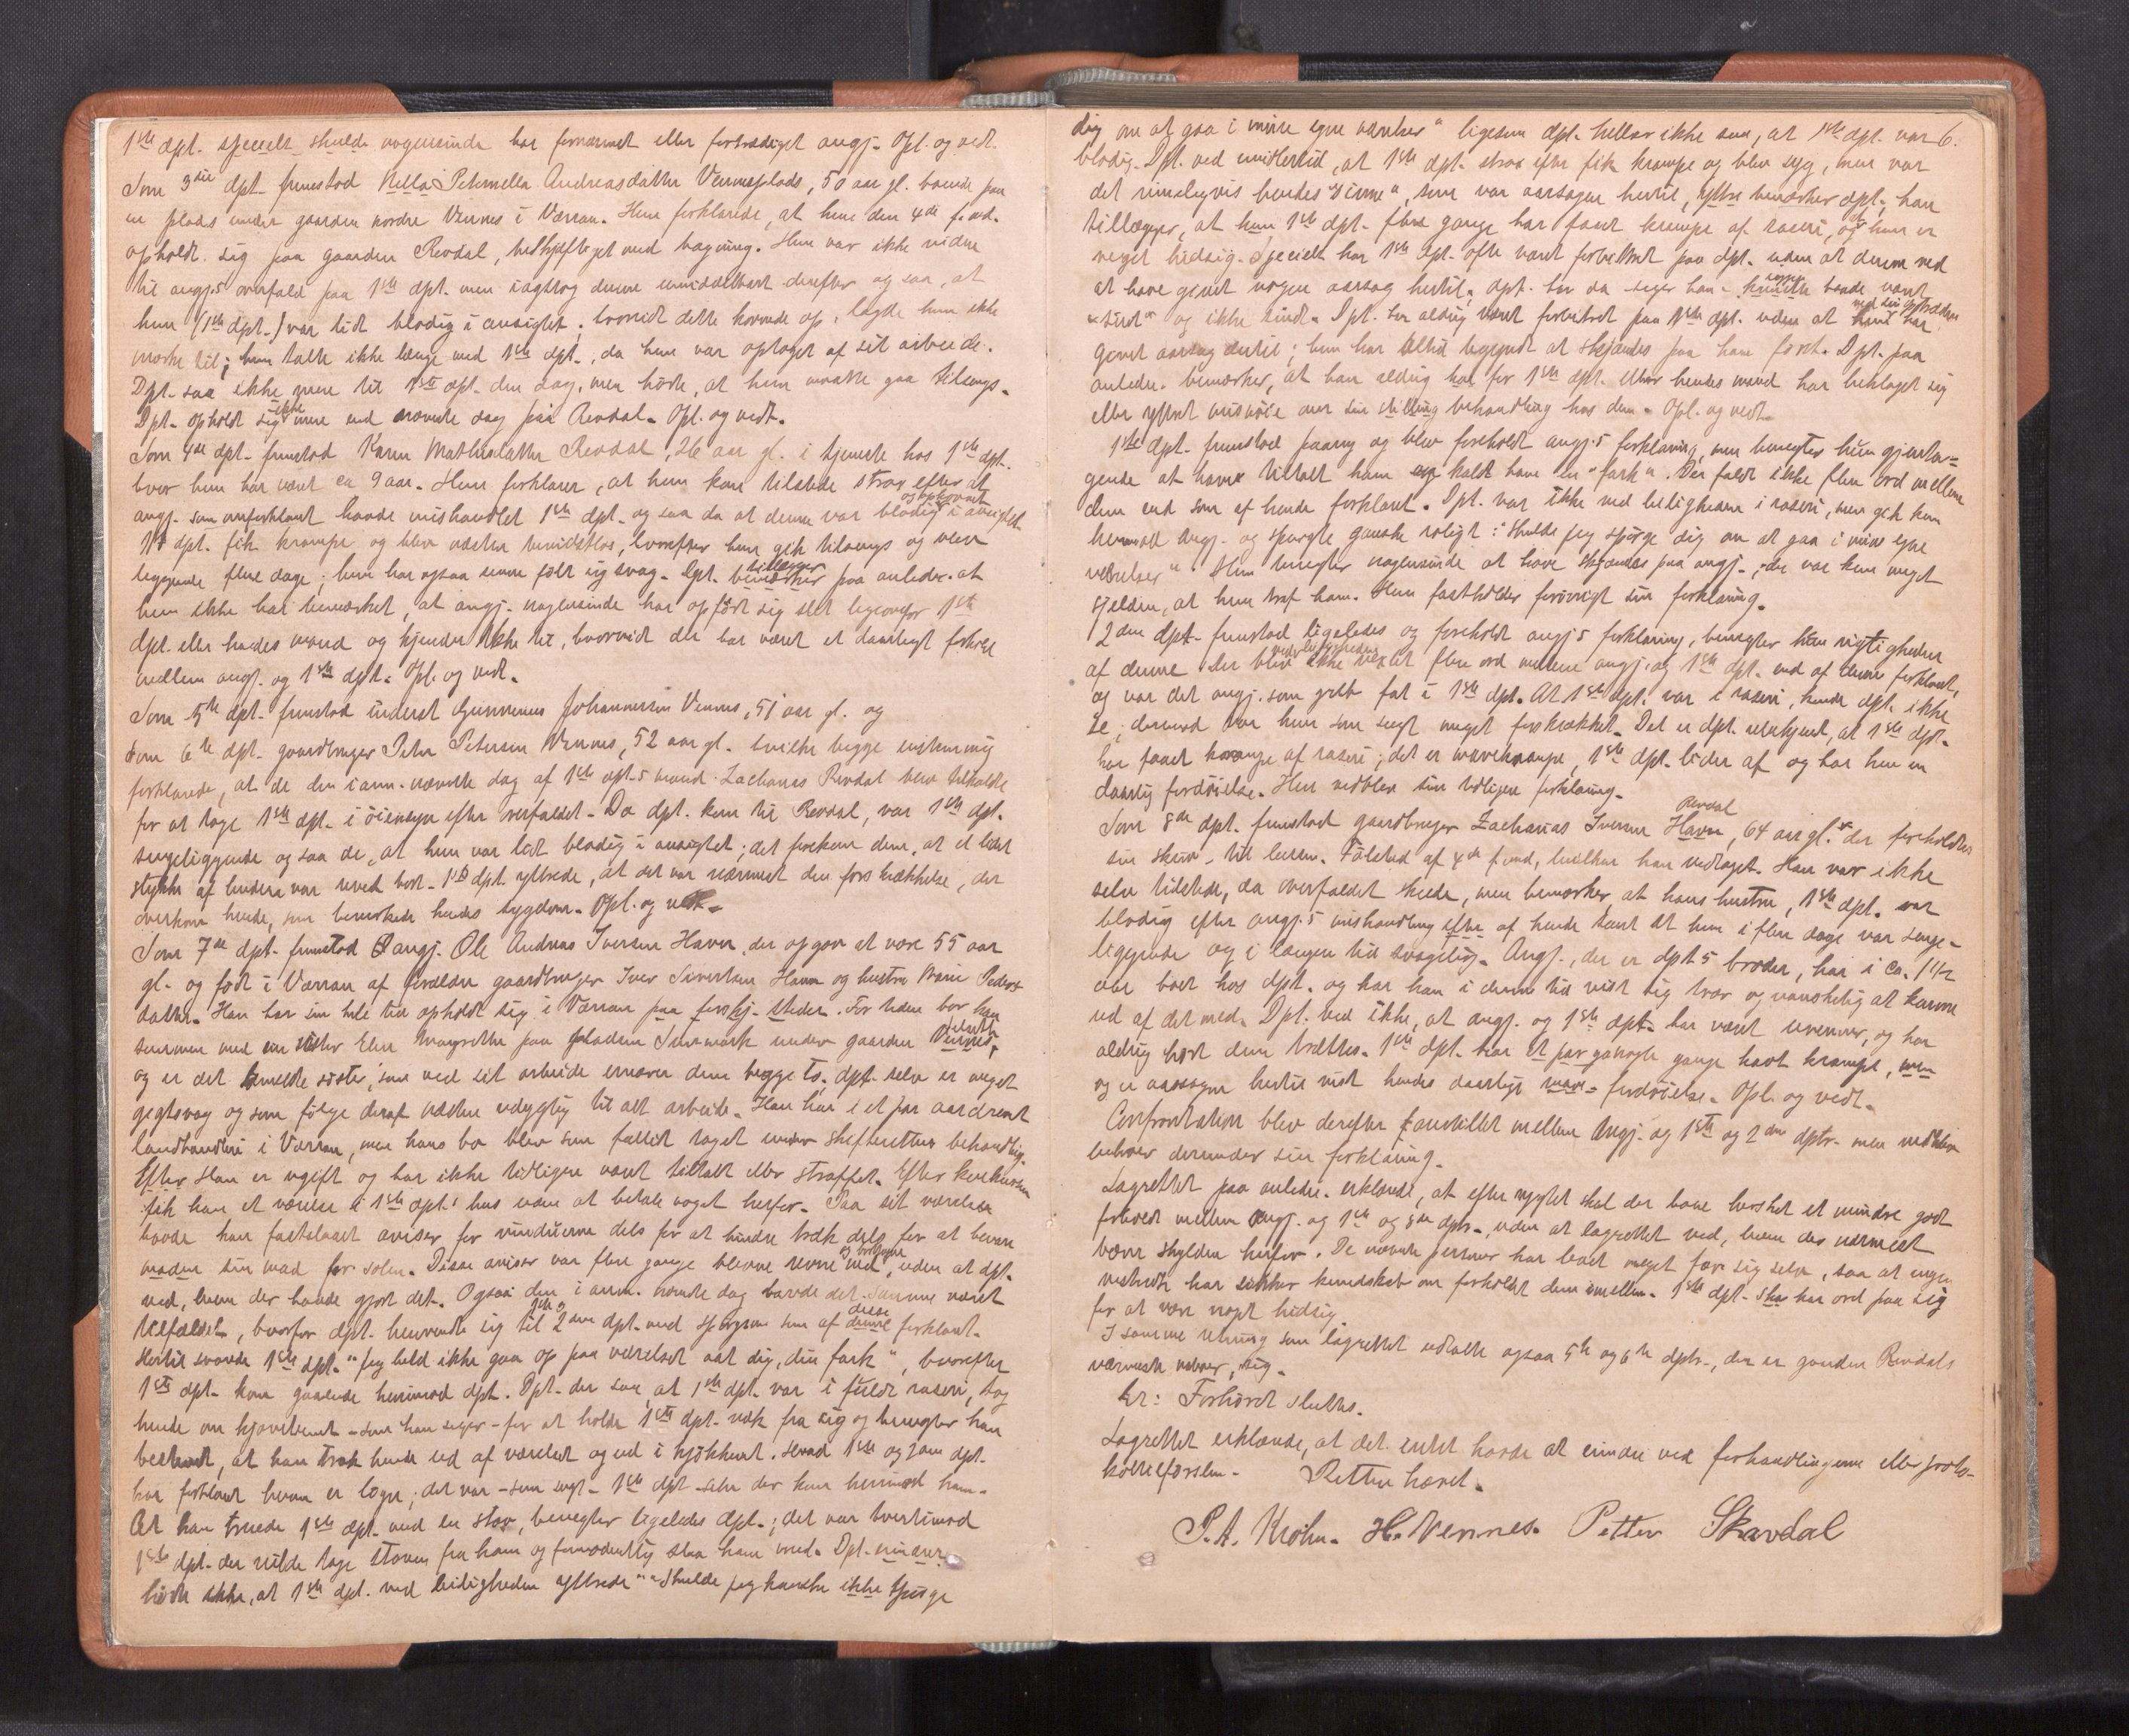 1ste dpt. specielt skulde nogensinde har fornærmet eller fortrædiget angj. Opl. og vedt.
Som 3die dpt. fremstod Nella Peternella Andreasdatter Vennesplads, 50 aar gl. boende paa
en plads under gaarden nordre Vennes i Værran. Hun forklarede, at hun den 4de f. md.
opholdt sig paa gaarden Revdal, beskjæftiget med bagning. Hun var ikke vidne
til angj.s overfald paa 1ste dpt. men iagttog denne umiddelbart derefter og saa, at
hun (1ste dpt.) var lidt blodig i ansigtet; hvorvidt dette hovnede op, lagde hun ikke
mærke til; hun talte ikke længe med 1ste dpt., da hun var optaget af sit arbeide.
Dpt. saa ikke mere til 1ste dpt. den dag, men hørte, at hun maatte gaa tilsengs.
Dpt. opholdt sig ikke mere end nævnte dag paa Revdal. Opl. og vedt.
Som 4de dpt. fremstod Karen Mathisdatter Revdal, 26 aar gl. i tjeneste hos 1ste dpt.
hvor hun har været ca 9 aar. Hun forklarer, at hun kom tilstede strax efter at
angj. som anforklaret havde mishandlet 1ste dpt. og saa da at denne var blodig og ophovnet i ansigtet.
1ste dpt. fik krampe og blev næsten bevidstløs, hvorefter hun gik tilsengs og blev
liggende flere dage; hun har ogsaa senere følt sig svag. Dpt. bemærker tillægger paa anledn. at
hun ikke har bemærket, at angj. nogensinde har opført sig slet ligeoverfor 1ste
dpt. eller hendes mand og kjender ikke til, hvorvidt der har været et daarligt forhold
mellem angj. og 1ste dpt. Opl. og vedt.
Som 5te dpt. fremstod inderst Gunnerius Johannessen Vennes, 51 aar gl. og
som 6te dpt. gaardbruger Peter Petersen Vennes, 52 aar gl. hvilke begge enstemmig
forklarede, at de den i anm. nævnte dag af 1ste dpt.s mand Zacharias Revdal blev tilkaldte
for at tage 1ste dpt. i øiensyn efter overfaldet. Da dpt. kom til Revdal, var 1ste dpt.
sengeliggende og saa de, at hun var lidt blodig i ansigtet; det forekom dem, at et lidet
stykke af huden var revet bort. 1ste dpt. yttrede, at det var nærmest den forskrækkelse, der
overkom hende, som bevirkede hendes sygdom. Opl. og vedt.
Som 7de dpt. fremstod angj. Ole Andreas Iversen Havn, der opgav at være 55 aar
gl. og født i Værran af forældre gaardbruger Iver Sivertsen Havn og hustru Marie Peders-
datter. Han har sin hele tid opholdt sig i Værran paa forskj. steder. For tiden bor han
sammen med sin søster Elen Margrethe paa pladsen Snemark under gaarden Vennes,
og er det sidstnævnte søster, som ved sit arbeide ernærer dem begge to; dpt. selv er meget
gigtsvag og som følge deraf næsten udygtig til alt arbeide. Han har i et par aar drevet
landhandleri i Værran, men hans bo blev som fallit taget under skifterettens behandling.
Efter Han er ugift og har ikke tidligere været tiltalt eller straffet. Efter konkursen
fik han et værelse i 1ste dpt.s hus uden at betale noget herfor. Paa sit værelse
havde han fastslaaet aviser for vinduerne dels for at hindre træk dels for at bevare
maden sin mad for solen. Disse aviser var flere gange blevne revne ned og borttagne, uden at dpt.
ved, hvem der havde gjort det. Ogsaa den i anm. nævnte dag havde det samme været
tilfældet, hvorfor dpt. henvendte sig til 1ste og 2den dpt. med spørgsm. som af denne disse forklaret.
Hertil svarede 1ste dpt. "Jeg held ikke gaa op paa værelset aat dig, din fark", hvorefter
1ste dpt. kom gaaende henimod dpt. Dpt. der saa, at 1ste dpt. var i fuldt raseri, tog
hende om kjævebenet - som han siger - for at holde 1ste dpt. væk fra sig og benegter han
bestemt, at han trak hende ud af værelset og ud i kjøkkenet. Hvad 1ste og 2den dpt.
har forklaret herom er løgn; det var - som sagt - 1ste dpt. selv der kom henimod ham.
At han truede 1ste dpt. med en stav, benegter ligeledes dpt.; det var tvertimod
1ste dpt. der vilde tage staven fra ham og formodentlig slaa ham med. Dpt.
hørte ikke, at 1ste dpt. ved leiligheden yttrede "Skulde jeg kanske ikke spørge
dig om at gaa i mine egne værelser" ligesom dpt. heller ikke saa, at 1ste dpt. var 6.
blodig. Dpt. ved imidlertid, at 1ste dpt. strax efter fik krampe og blev syg, men var
det rimeligvis hendes "sinne", som var aarsagen hertil, yttrer bemærker dpt., han
tillægger, at hun 1ste dpt. flere gange har faaet krampe af raseri, og hun er
meget hidsig. Specielt har 1ste dpt. ofte været forbittret paa dpt. uden at denne ved
at have givet nogen aarsag hertil; dpt. har da - siger han - baade været
"sindt" og ikke sindt. Dpt. har aldrig været forbittret paa 1ste dpt. uden at hun ved sin optræden har
givet aarsag dertil; hun har altid begyndt at skjændes paa ham først. Dpt. paa
anledn. bemærker, at han aldrig har for 1ste dpt. eller hendes mand har beklaget sig
eller yttret misnøie over sin stilling behandling hos dem. Opl. og vedt.
1ste dpt. fremstod paany og blev foreholdt angj.s forklaring, men benegter hun gjenta-
gende at have tiltalt ham og kaldt ham en "fark". Der faldt ikke flere ord mellem
dem end som af hende forklaret. Dpt. var ikke ved leiligheden i raseri, men gik kun
henimod angj. og spurgte ganske roligt: "Skulde jeg spørge dig om at gaa i mine egne
værelser". Hun benegter nogensinde at have skjændts paa angj.; der var kun meget
sjelden, at hun traf ham. Hun fastholder forøvrigt sin forklaring.
2den dpt. fremstod ligeledes og foreholdt angj.s forklaring, benegter hun rigtigheden
af denne. Der blev ved leiligheden ikke vexlet flere ord mellem angj. og 1ste dpt. end af denne forklaret,
og var det angj. som greb fat i 1ste dpt. At 1ste dpt. var i raseri, kunde dpt. ikke
se; derimod var hun som sagt meget forskrækket. Det er dpt. ubekjendt, at 1ste dpt.
har faaet krampe af raseri; det er mavekrampe, 1ste dpt. lider af og har hun en
daarlig fordøielse. Hun vedblev sin tidligere forklaring.
Som 8de dpt. fremstod gaardbruger Zacharias Iversen Havn Revdal, 64 aar gl. der foreholdtes
sin skriv. til lensm. Følstad af 4de f. md., hvilken han vedtaget. Han var ikke
selv tilstede, da overfaldet skede, men bemærker, at hans hustru, 1ste dpt. var
blodig efter angj.s mishandling efter af hende samt at hun i flere dage var senge-
liggende og i længere tid svagelig. Angj., der er dpt.s broder, har i ca. 1 1/2
aar boet hos dpt. og har han i denne tid vist sig tvær og vanskelig at komme
ud af det med. Dpt. ved ikke, at angj. og 1ste dpt. har været uvenner, og har
aldrig hørt dem trættes. 1ste dpt. har et par ganske gange havt krampe, men
og er aarsagen hertil vist hendes daarlige mave-fordøielse. Opl. og vedt.
Confrontation blev derefter foranstillet mellem angj. og 1ste og 2den dptr. men vedblev
enhver derunder sin forklaring.
Lagrettet paa anledn. erklærede, at efter rygtet skal der have hersket et mindre godt
forhold mellem angj. og 1ste og 8de dptr., uden at lagrettet ved, hvem der nærmest
bærer skylden herfor. De nævnte personer har levet meget for sig selv, saa at ingen
har sikker kundskab om forholdet dem imellem. 1ste dpt. skal har ord paa sig
for at være noget hidsig.
I samme retning som lagrettet udtalte ogsaa 5te og 6te dptr., der er gaarden Revdals
nærmeste naboer, sig.
Kr: Forhøret sluttes.
Lagrettet erklærede, at det intet havde at erindre ved forhandlingerne eller proto-
koltilførslen. Retten hævet.
P. A. Krohn. H. Vennes. Petter Skavdal